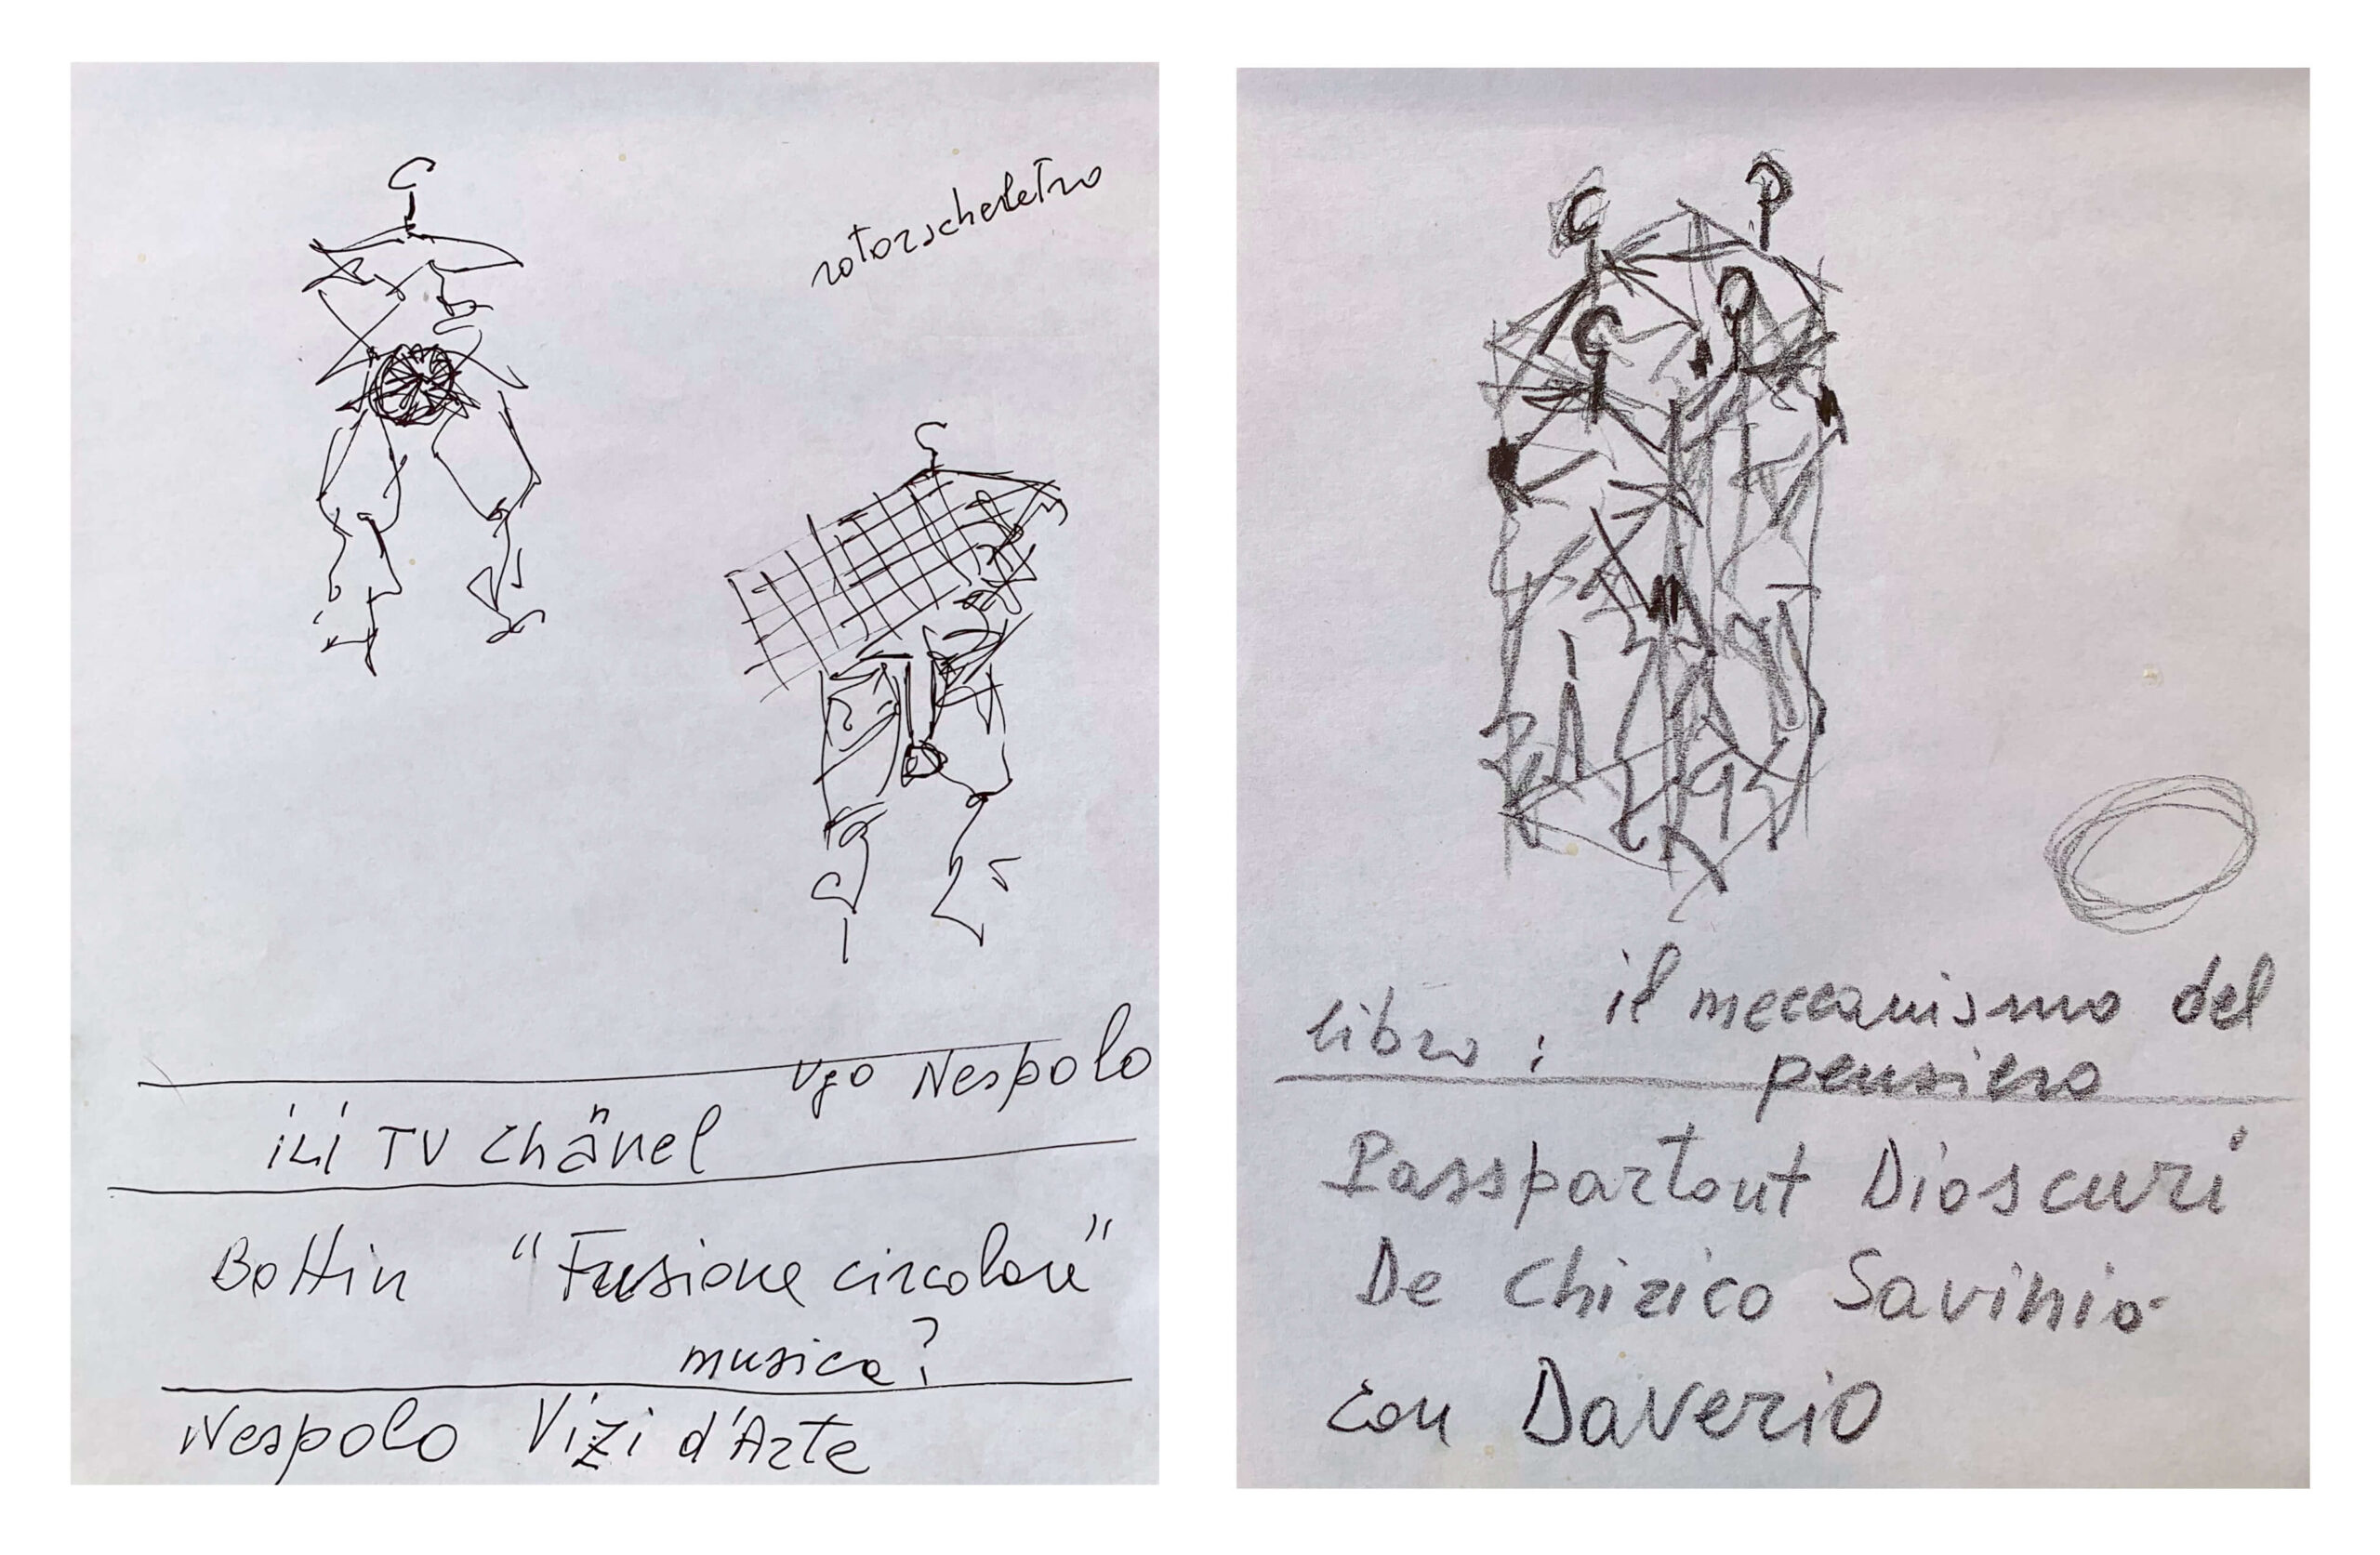 rotorscheletro
Ugo Nespolo
TV Chänel
Bottin "Fusione circolare"
musica?
Nespolo Vizi d'Arte
libro: il meccanismo del
pensiero
Passpartout Dioscuri
De Chirico Savinio
con Daverio